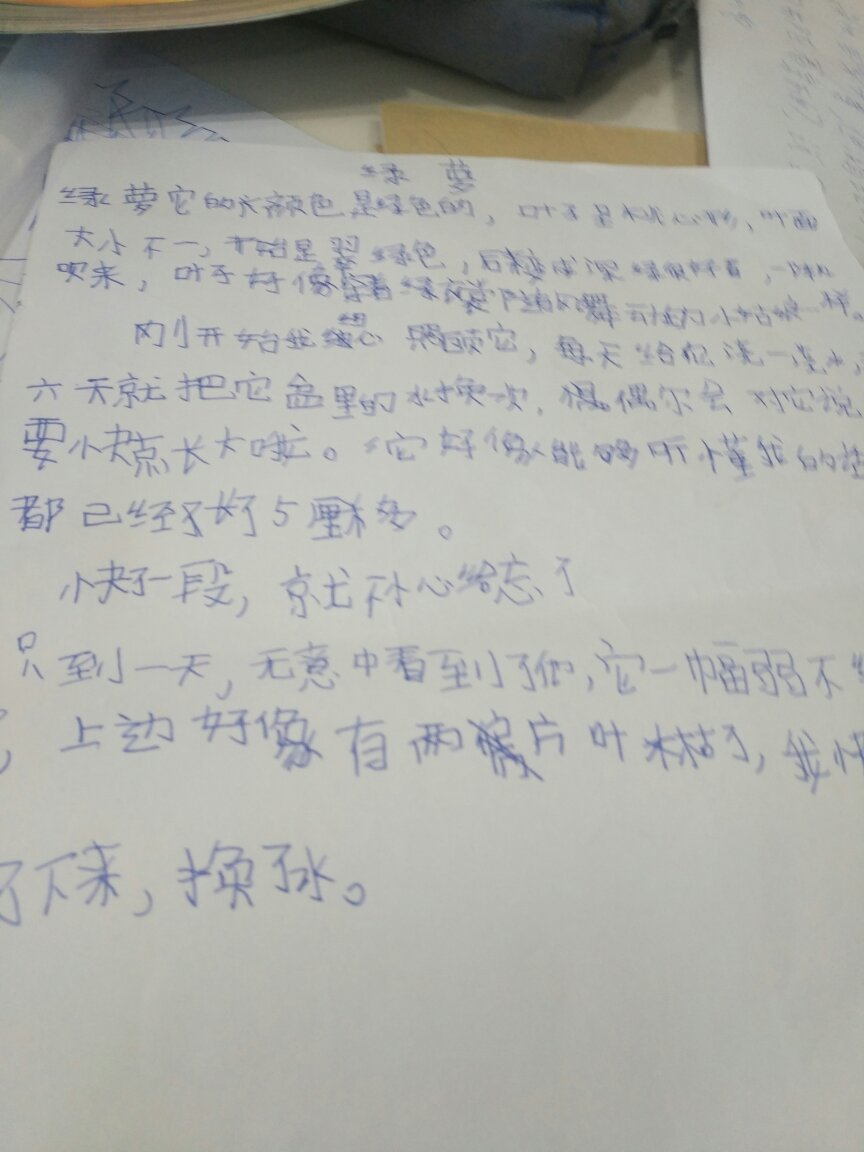 绿 萝
绿萝它的颜色是绿色的，叶子是心形，叶面
大小不一，开始是翠绿色，后来变成深绿很好看，一阵
吹来，叶子好像穿着绿裳 小姑娘一样。
刚开始我细心照顾它，每天给它浇一次水，
六天就把它盆里的水换一次，偶尔会对它说
要快点长大哦。它好像能够听懂我的话
都已经了好5厘米多。
一段，就不小心给忘了
只到一天，无意中看到了他，它一幅弱不
，上边好像有两片叶枯了，我快
了下来，换了水。